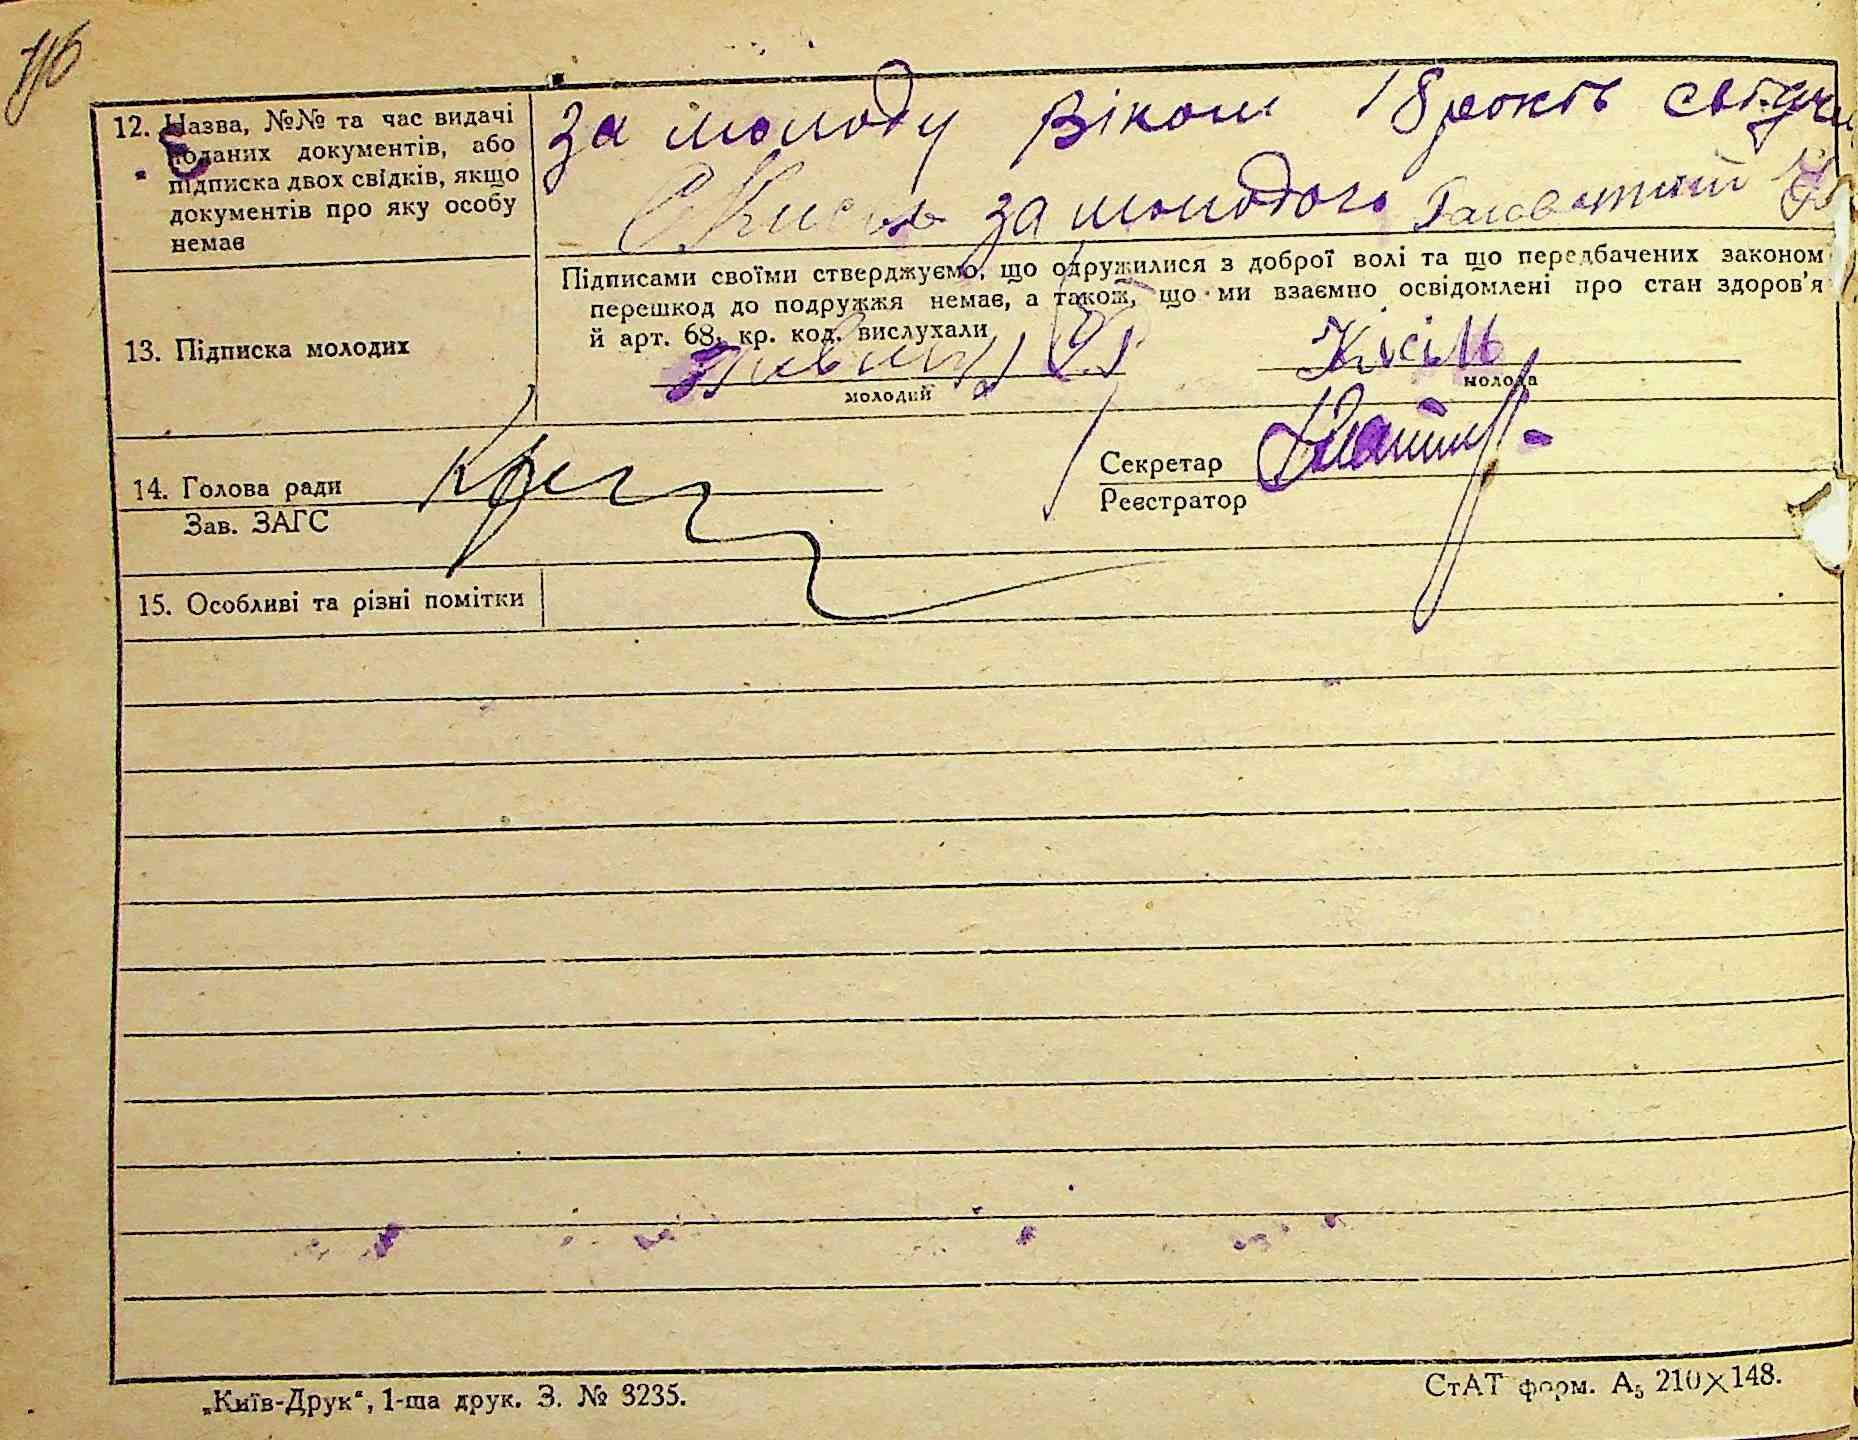 12. Назва, №№ та час видачі
поданих документів, або
підписка двох свідків, якщо
документів про яку особу
немає
за молоду віком 18 років свідчи
Кисіль за молодого
13. Підписка молодих
Підписами своїми стверджуємо, що одружилися з доброї волі та що передбачених законом
перешкод до подружжя немає, а також, що ми взаємно освідомлені про стан здоров'я
й арт. 68, кр. код. вислухали
Кисіль
молодий
молода
14. Голова ради
Зав. ЗАГС
Секретар
Реєстратор
15. Особливі та різні помітки
„Київ-Друк“, 1-ша друк. З. № 3235.
СтАТ форм. А₅ 210×148.